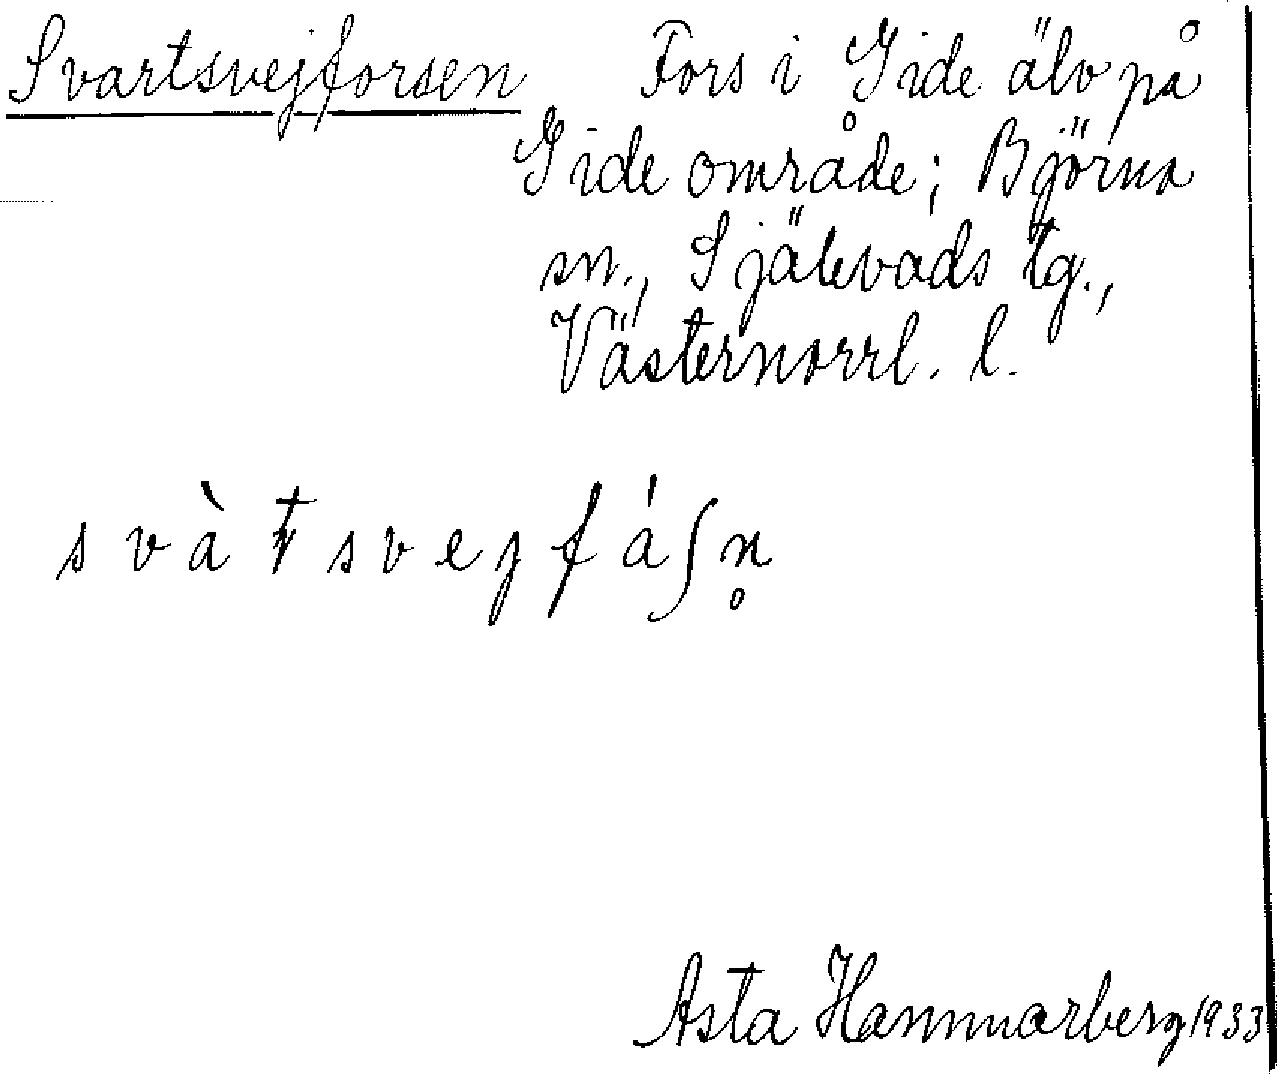 Svartsvejforsen Fors i Gide älv på
Gide område; Björna
sn., Själevads tg.,
Västernorrl. l.
svàt̩svejfáʃn̥
Asta Hammarberg 1933